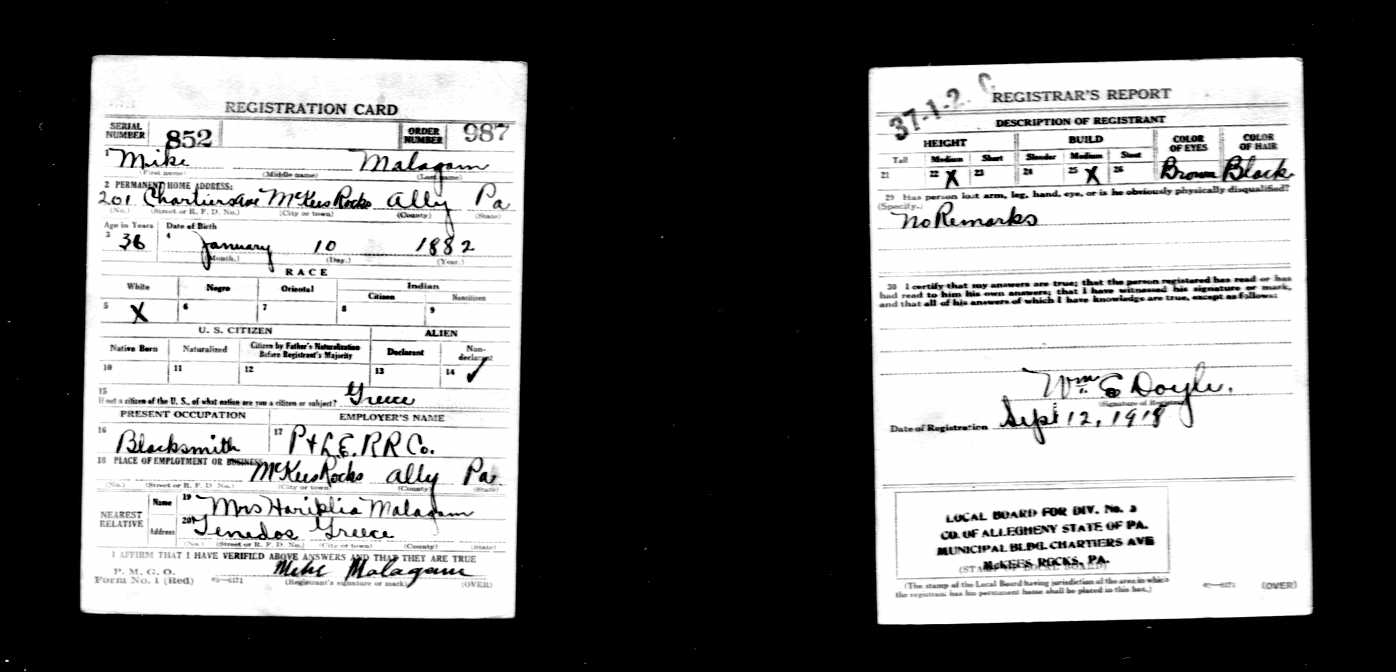 REGISTRATION CARD
SERIAL NUMBER 852 ORDER NUMBER 987
1 Mike Malagam
(First name) (Middle name) (Last name)
2 PERMANENT HOME ADDRESS:
201 Chartiers Ave McKees Rocks Ally Pa
(No.) (Street or R. F. D. No.) (City or town) (County) (State)
Age in Years Date of Birth
3 36 4 January 10 1882
(Month.) (Day.) (Year.)
RACE
White Negro Oriental Indian
Citizen Noncitizen
5 X 6 7 8 9
U. S. CITIZEN ALIEN
Native Born Naturalized Citizen by Father's Naturalization Before Registrant's Majority Declarant Non-declarant
10 11 12 13 14 ✓
15 If not a citizen of the U. S., of what nation are you a citizen or subject? Greece
PRESENT OCCUPATION EMPLOYER'S NAME
16 Blacksmith 17 P + L.E. RR Co.
18 PLACE OF EMPLOYMENT OR BUSINESS
McKees Rocks Ally Pa.
(No.) (Street or R. F. D. No.) (City or town) (County) (State)
NEAREST RELATIVE Name 19 Mrs Hariklia Malagam
Address 20 Tenedos Greece
(No.) (Street or R. F. D. No.) (City or town) (County) (State)
I AFFIRM THAT I HAVE VERIFIED ABOVE ANSWERS AND THAT THEY ARE TRUE
P. M. G. O.
Form No. 1 (Red) Mike Malagam
(Registrant's signature or mark) (OVER)
37-1-2 C
REGISTRAR'S REPORT
DESCRIPTION OF REGISTRANT
HEIGHT BUILD COLOR OF EYES COLOR OF HAIR
Tall Medium Short Slender Medium Stout
21 22 X 23 24 25 X 26 Brown Black
29 Has person lost arm, leg, hand, eye, or is he obviously physically disqualified?
(Specify.) No Remarks
30 I certify that my answers are true; that the person registered has read or has
had read to him his own answers; that I have witnessed his signature or mark,
and that all of his answers of which I have knowledge are true, except as follows:
Wm. E Doyle.
(Signature of Registrar)
Date of Registration Sept 12, 1918
LOCAL BOARD FOR DIV. No. 3
CO. OF ALLEGHENY STATE OF PA.
MUNICIPAL BLDG. CHARTIERS AVE
McKEES ROCKS, PA.
(STAMP OF LOCAL BOARD)
(The stamp of the Local Board having jurisdiction of the area in which
the registrant has his permanent home shall be placed in this box.)
(OVER)